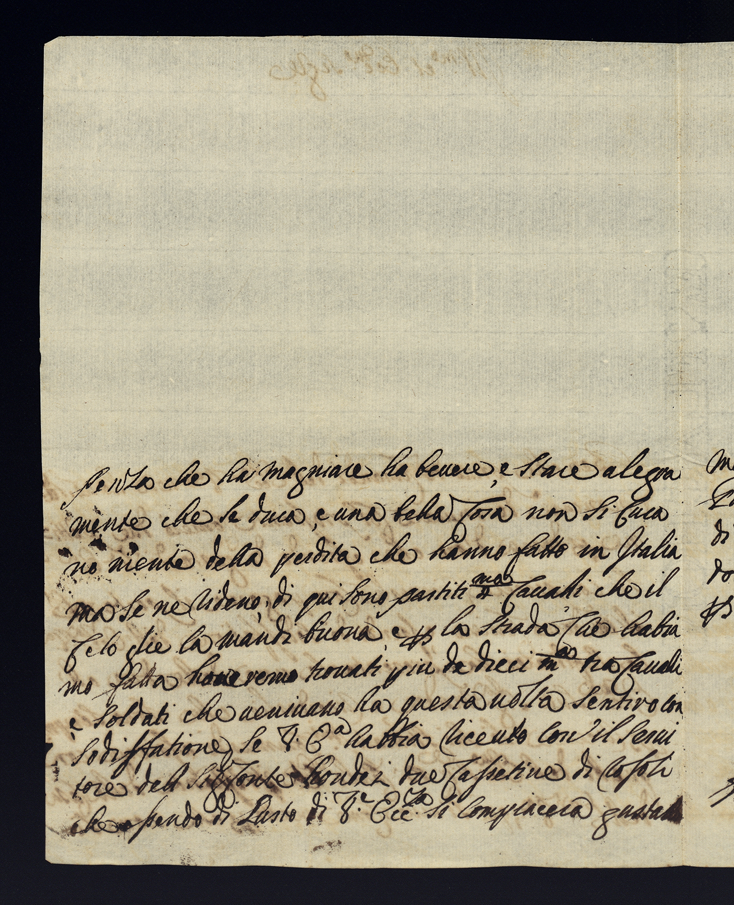 senza che ha magniare ha bevere, e stare alegra
mente che se dura, e una bella cosa non si cura
no niente della perdita che hanno fatto in Italia
ma se ne rideno, di qui sono partiti 4 ma Cavalli che il
Celo glie la mandi buona, e la strada che habia
mo fatta haveremo trovati piu da dieci ma tra Cavalli
e soldati che venivano ha questa volta sentiro con
sodisfatione se V. Ea habbia riceuto con il servi
tore del Sigr Conte due Cassetine di
che essendo di Gusto di V. Ecc.za si compiacera gustar